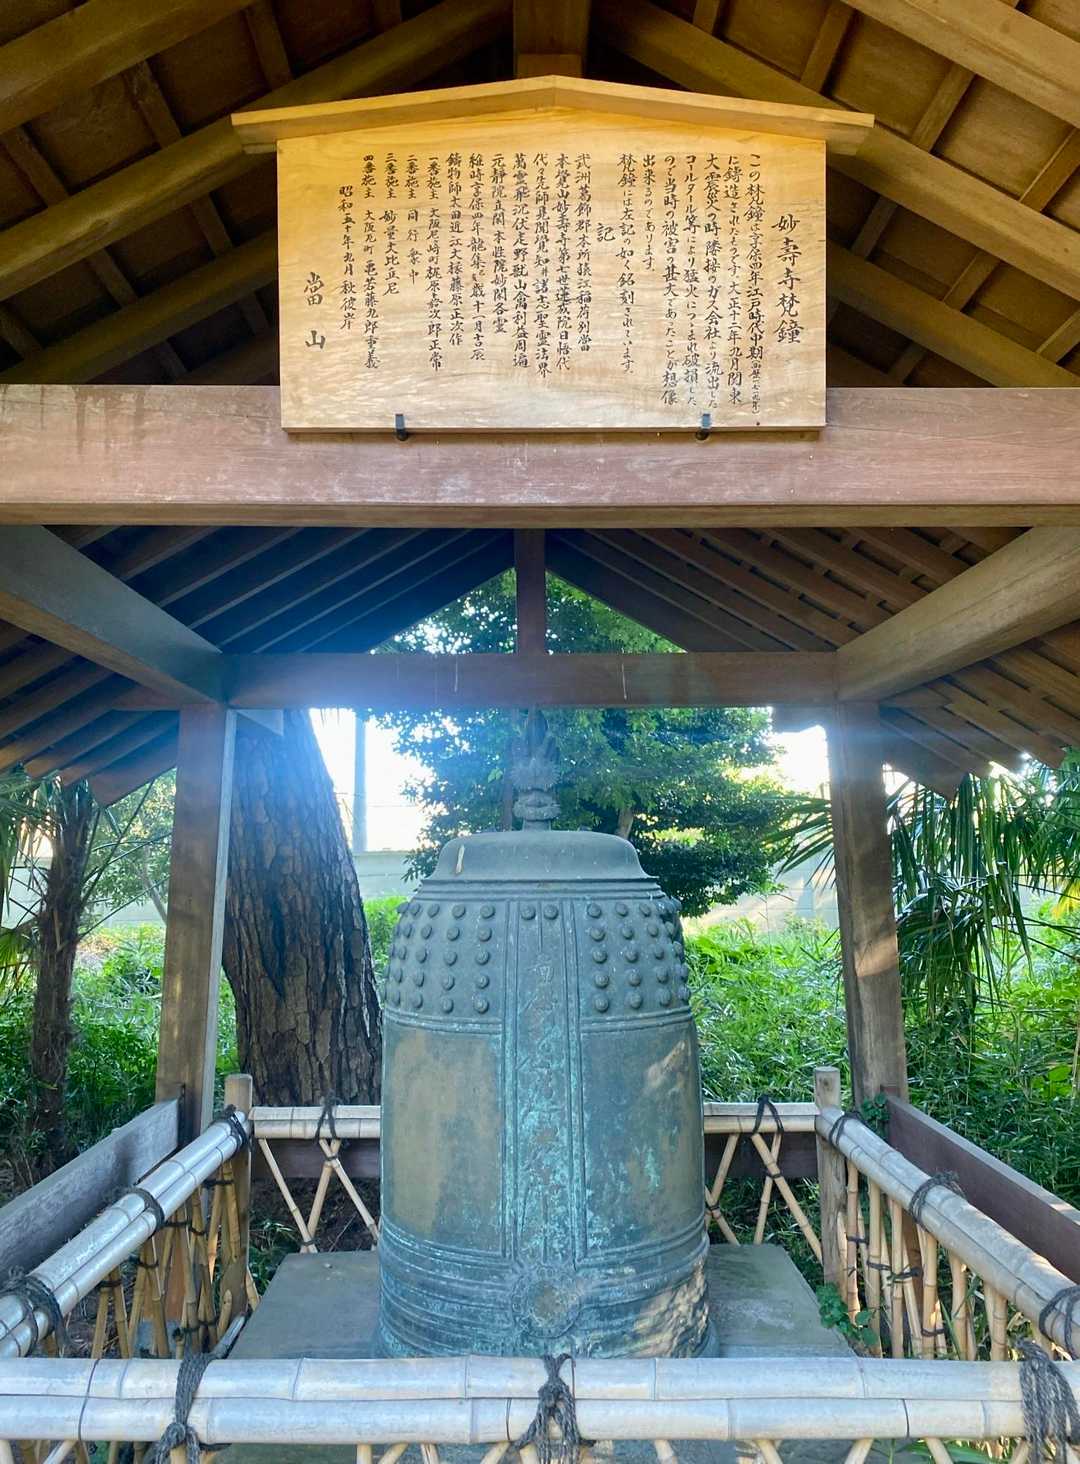 妙壽寺梵鐘
この梵鐘は享保四年江戸時代中期(西暦一七一九年)
に鋳造されたものです。大正十二年九月関東
大震災の時隣接のガス会社より流出した
コールタール等により猛火につゝまれ破損した
ので当時の被害の甚大であったことが想像
出来るのであります。
梵鐘には左記の如く銘刻されています。
記
武洲葛飾郡本所猿江稲荷別當
本覺山妙壽寺第七世蓮成院日悟代
代々先師見聞覺知并諸志聖霊法界
萬霊飛沉伏走野獣山禽利益周遍
元靜院立閑本性院妙閑各霊
維時享保四年龍集己亥歳十一月吉辰
鋳物師太田近江大掾藤原正次作
一番施主 大阪尼崎町梶原嘉次郎正常
二番施主 同行衆中
三番施主 妙量大比丘尼
四番施主 大阪瓦町 亀若藤九郎重義
昭和五十年九月秋彼岸
當山
南無